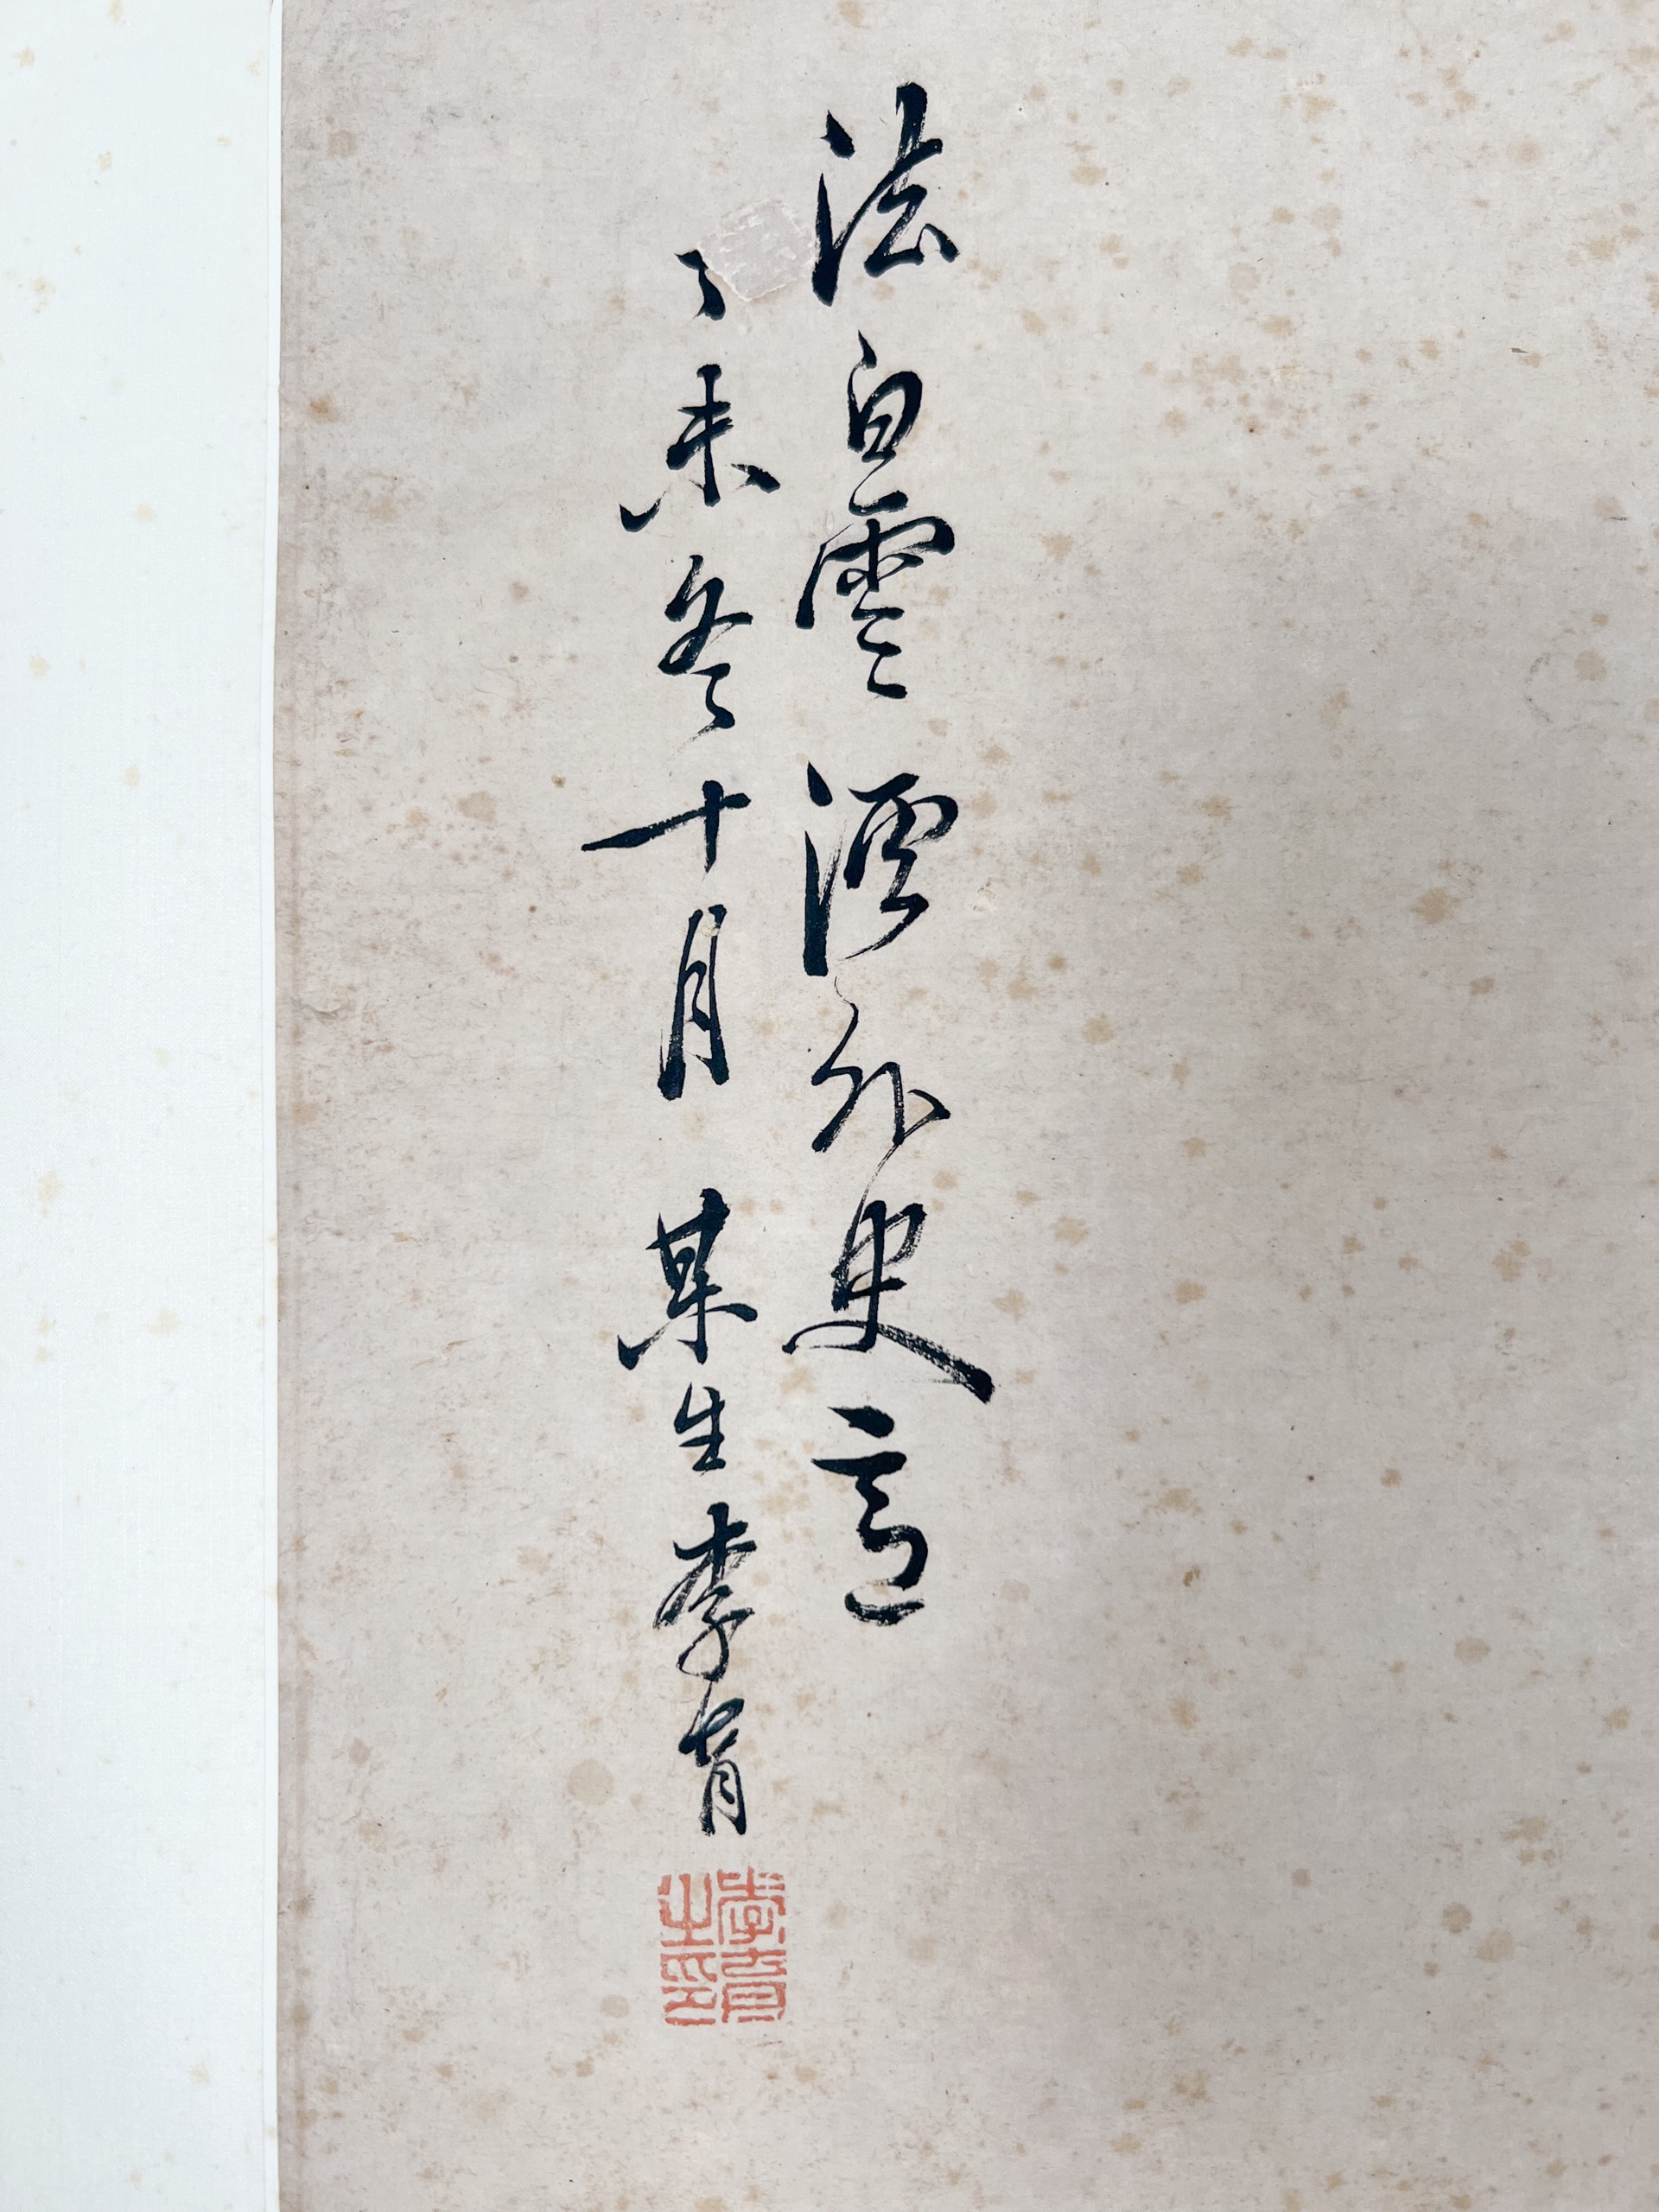 法白雲溪外史意
丁未冬十月 某生李育
李育之印